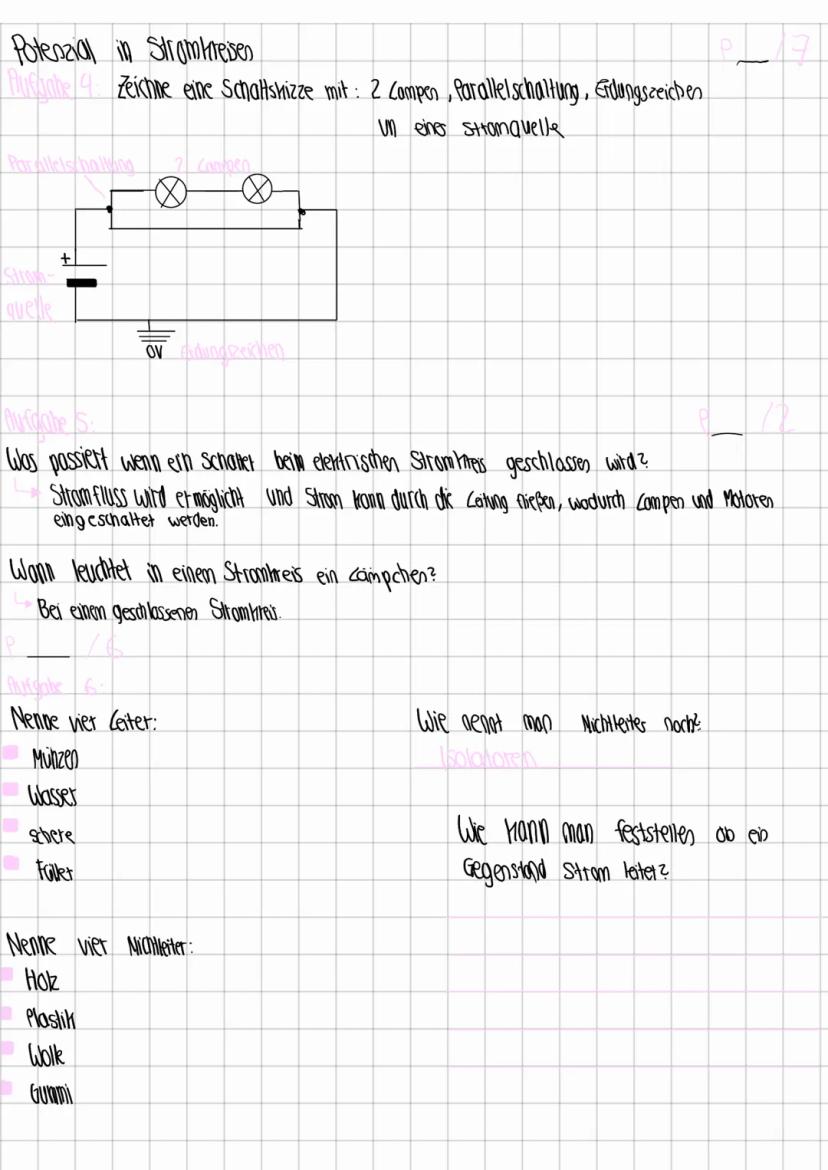 Potenzial in Stromkreisen
P __ /7
Aufgabe 4: Zeichne eine Schaltskizze mit: 2 Lampen, Parallelschaltung, Erdungszeichen
un einer stromquelle
Parallelschaltung 2 Lampen
+
Strom-
quelle
0V Erdungszeichen
Aufgabe 5:
P __ /2
Was passiert wenn ein Schalter beim elektrischen Stromkreis geschlossen wird?
↳ Stromfluss wird ermöglicht und Strom kann durch die Leitung fließen, wodurch Lampen und Motoren
eingeschaltet werden.
Wann leuchtet in einem Stromkreis ein Lämpchen?
↳ Bei einem geschlossenen Stromkreis.
P __ /6
Aufgabe 6:
Nenne vier Leiter:
Münzen
Wasser
schere
Füller
Wie nennt man Nichtleiter noch?
Isolatoren
Wie kann man feststellen ob ein
Gegenstand Strom leitet?
Nenne vier Nichtleiter:
Holz
Plastik
Wolle
Gummi